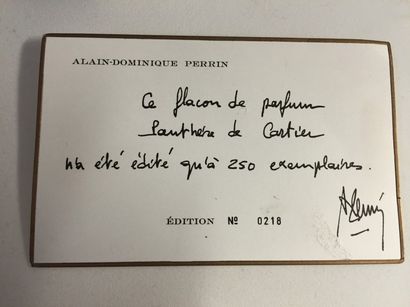 ALAIN-DOMINIQUE PERRIN
Ce flacon de parfum
Panthère de Cartier
n'a été édité qu'à 250 exemplaires.
ÉDITION Nº 0218